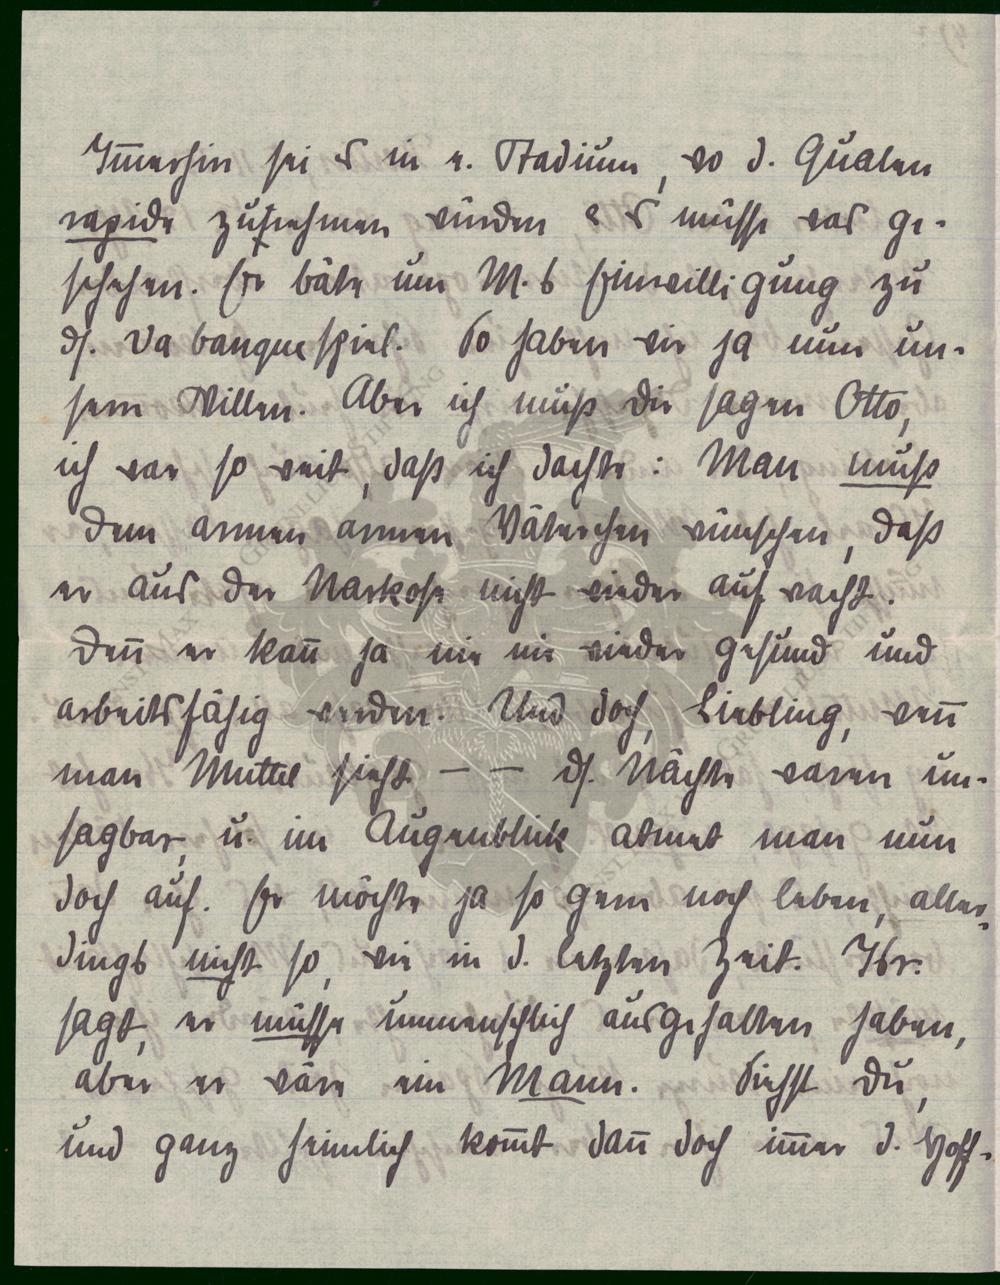 Im̅erhin sei es in e. Stadium, wo d. Qualen
rapide zunehmen würden & es müsse was ge-
schehen. Er bäte um M.s Einwilligung zu
ds. Va banquespiel. So haben wir ja nun un-
sern Willen. Aber ich muß dir sagen Otto,
ich war so weit, daß ich dachte: Man muß
dem armen armen Väterchen wünschen, daß
er aus der Narkose nicht wieder aufwacht.
Den̅ er kan̅ ja nie nie wieder gesund und
arbeitsfähig werden. Und doch, Liebling, wen̅
man Muttel sieht — — ds. Nächte waren un-
sagbar, u. im Augenblick atmet man nun
doch auf. Er möchte ja so gern noch leben, aller-
dings nicht so, wie in d. letzten Zeit. Isr.
sagt, er müsse unmenschlich ausgehalten haben,
aber er wäre ein Mann. Siehst du,
und ganz heimlich kom̅t dan̅ doch im̅er d. Hoff-